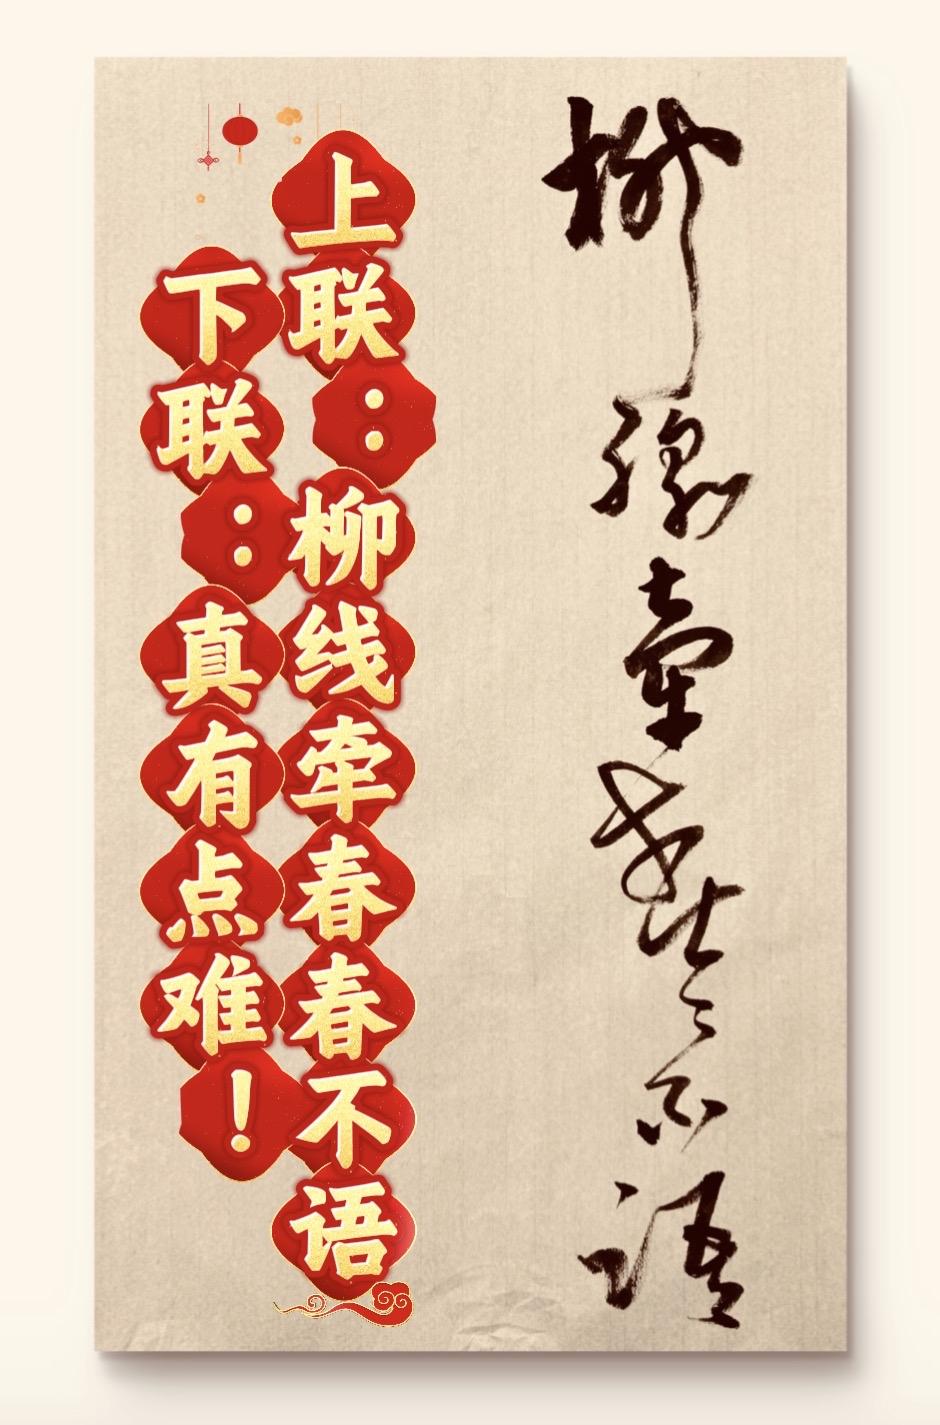 柳線牽春春不語
上联：柳线牵春春不语
下联：真有点难！